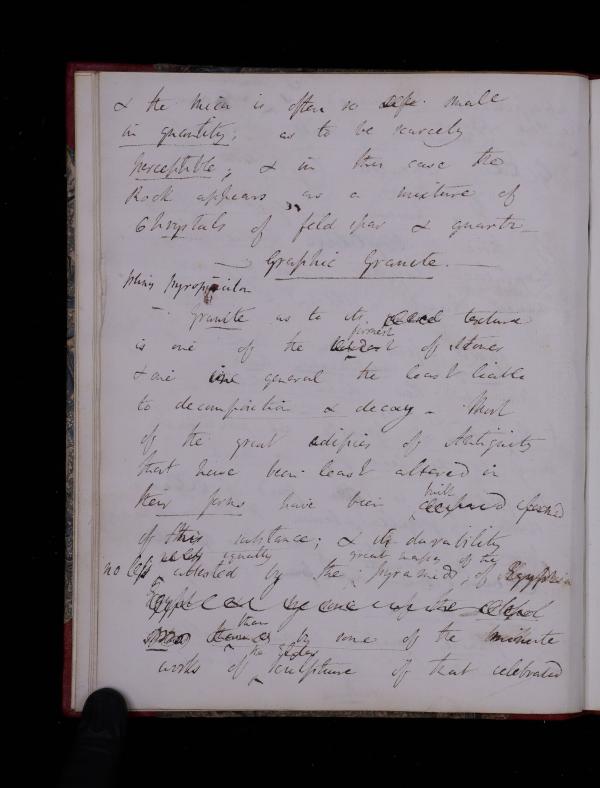 & the mica is often so small
in quantity; as to be scarcely
perceptible, & in this case the
Rock appears as a mixture of
Chrystals of feld spar & quartz —
— Graphic Granite. —
pliny pyropoicilon
— Granite as to its texture
is one of the firmest of stones
& one in general the least liable
to decomposition & decay — Most
of the great edifices of Antiquity
that have been least altered in
their forms have been built
of this substance; & its durability
equally great masses of the
no less attested by the pyramids, of Egyptian
than by some of the minute
works of the sculpture of that celebrated